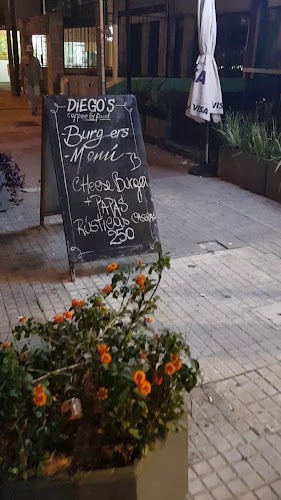 DIEGO'S
coffee & food
-Burgers
-Menú
CHeese BurgeR
+ PAPAS
RÚSTICAS CASERAS
250
VISA
VISA